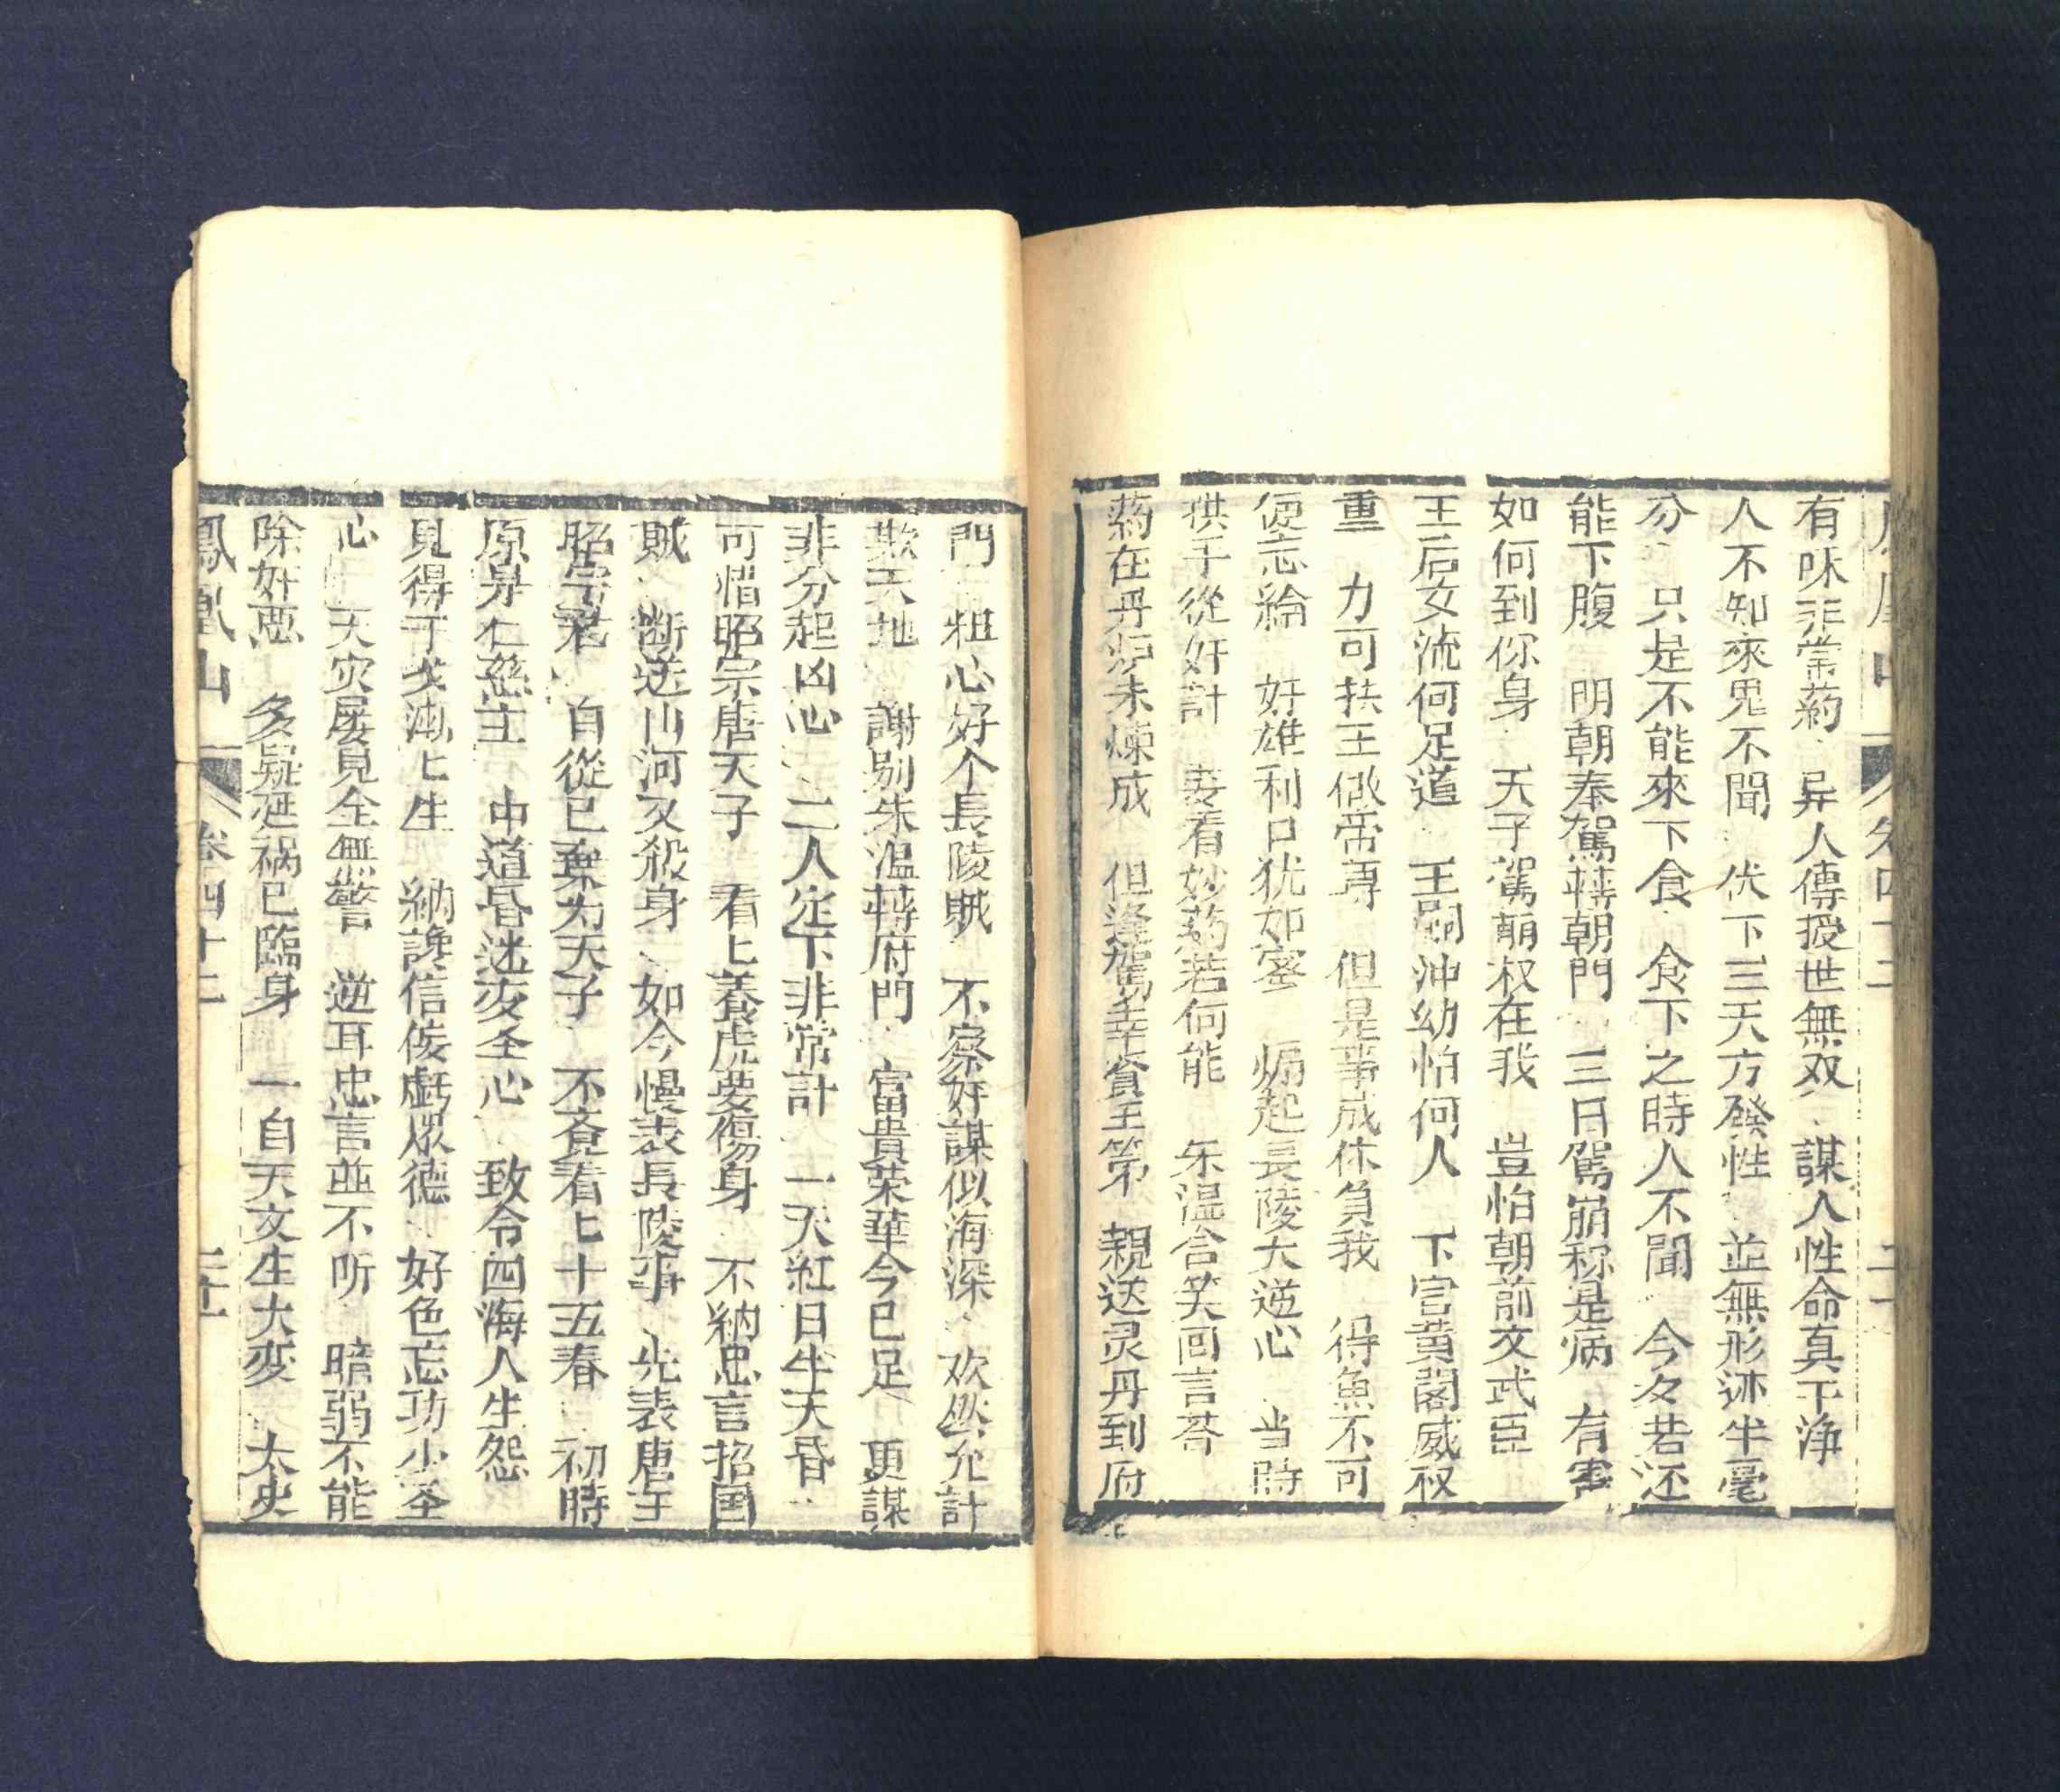 有味非常葯 异人傳授世無双 謀人性命真干净
人不知來鬼不聞 伏下三天方發性 並無形迹半毫
分 只是不能來下食 食下之時人不聞 今夕若还
能下腹 明朝奉駕轉朝門 三日駕崩称是病 有害
如何到你身 天子駕崩权在我 豈怕朝前文武臣
王后女流何足道 王嗣冲幼怕何人 下官黄閣威权
重 力可扶王做帝尊 但是事成休負我 得魚不可
便忘綸 奸雄利口犹如蜜 煽起長陵大逆心 当時
拱手從奸計 妾看妙葯若何能 朱温含笑回言荅
葯在丹炉未煉成 但逢駕幸賓王第 親送灵丹到府
門 粗心好个長陵賊 不察奸謀似海深 欢然允計
欺天地 謝别朱温轉府門 富貴荣華今已足 更謀
非分起凶心 二人定下非常計 一天紅日半天昏
可惜昭宗唐天子 看匕養虎要傷身 不納忠言招国
賊 断送山河又殺身 如今慢表長陵事 先表唐王
昭宗君 自從已來为天子 不覔看匕十五春 初時
原是仁慈主 中道昏迷变圣心 致令四海人生怨
見得干戈漸匕生 納讒信佞虧众德 好色忘功少圣
心 天灾屡見全無警 逆耳忠言並不听 暗弱不能
除奸惡 多疑延禍已臨身 一自天文生大变 太史
鳳凰山 卷四十二